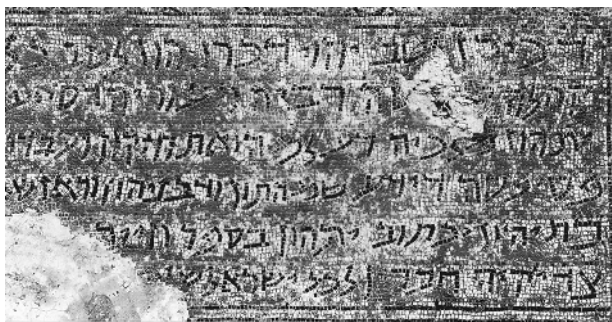 דכירן לטב יהוי דכרנהון לטב
רביה וזעוריה דסייע
יתהון מלכיה דעלמה ואתחזקון ועבדון
פסיפסה דידע שמהתהון ודבניהון ודאנשי
בתיהון יכתוב יתהון בספר חייה
צדיקיה חברין לכל ישראל